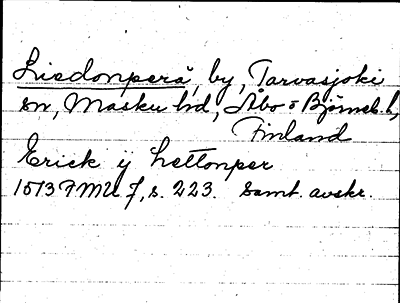 Liedonperä, by, Tarvasjoki
sn, Masku hd, Åbo o Björneb. l,
Finland
Erick ij Lettonper
1513 FMU 7, s. 223. Samt. avskr.